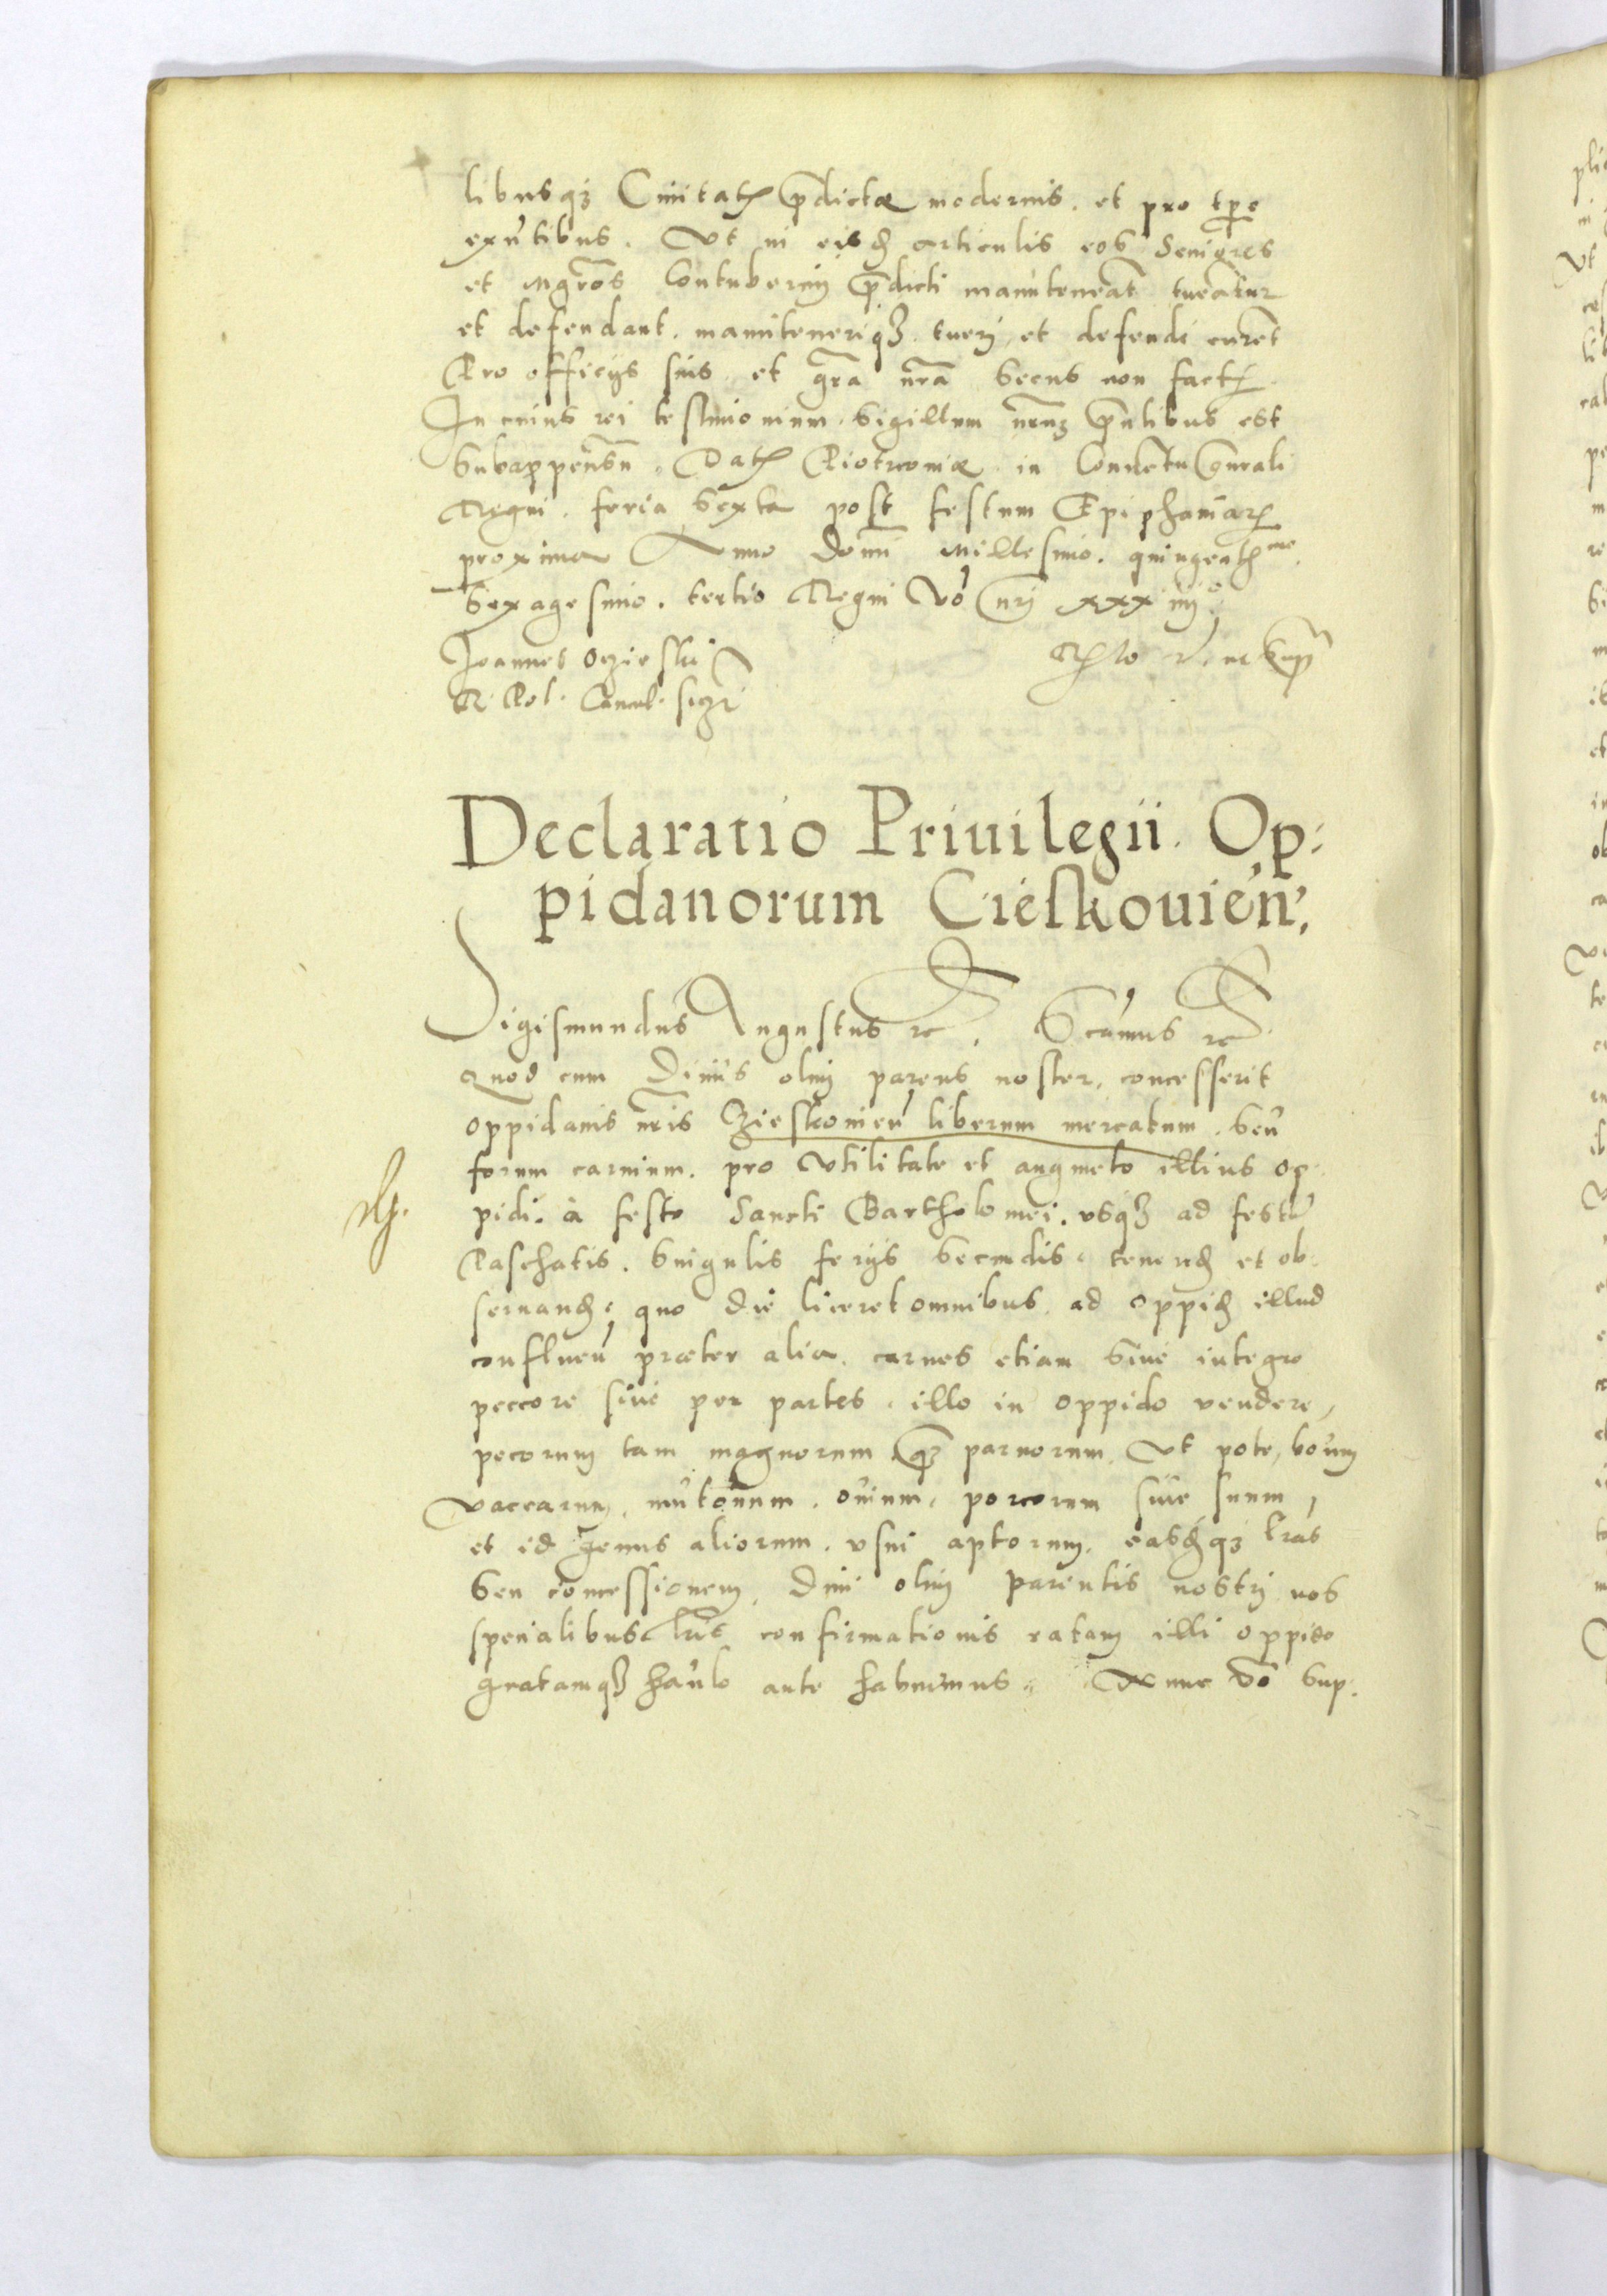 libusq3 Ciuitatis p̄dictæ modernis. et pro tp̄e
exn̄tibus. Vt in eisd articulis eos Seniores
et Mgr̄os Contubernij p̄dicti manuteneāt tueātur
et defendant. manuteneriq3. tuerj et defendi curēt
Pro officijs suis et gr̄a nr̄a Secus non fact
In cuius rei testimonium. Sigillum nr̄um3 p̄ntibus est
Subappensū. Dat Piotrcouiæ. in Conuētu gn̄rali
Regni. feria Sexta post festum Epiphaniār
proxima Anno Domī Millesimo. quingent mo.
Sexagesimo. tertio Regni Vō nr̄j xxxiiijo.
Joannes Oczieski
R. Pol. Cancel. ss̄pt
Declaratio Priuilegii Op:
pidanorum Cieskouień.
Sigismundus Augustus rc. Scām̄us rc
Quod cum Diuus olim parens noster, concesserit
oppidanis nr̄is Czieskouień liberum mercatum. Seu
forum carnium. pro Vtilitate et augmēto illius op-
pidi. à festo Sancti Bartholomei. vsq3 ad festū
Paschatis. Singulis ferijs Secundis. tenend et ob-
seruand: quo die liceret omnibus. ad oppid illud
confluen præter alia. carnes etiam Siue integro
peccore siue per partes. illo in oppido vendere,
pecorum tam magnorum q̄3 paruorum. Vt pote, boum
vaccarum, mutonum. ouium. porcorum siue suum,
et id genus aliorum. vsui aptorum. easdq3 lrās
Seu concessionem, Diui olim parentis nostrj nos
specialibus lr̄is confirmationis ratam illi oppido
gratamq3 haūlo ante habuimus. Nunc vō Sup-